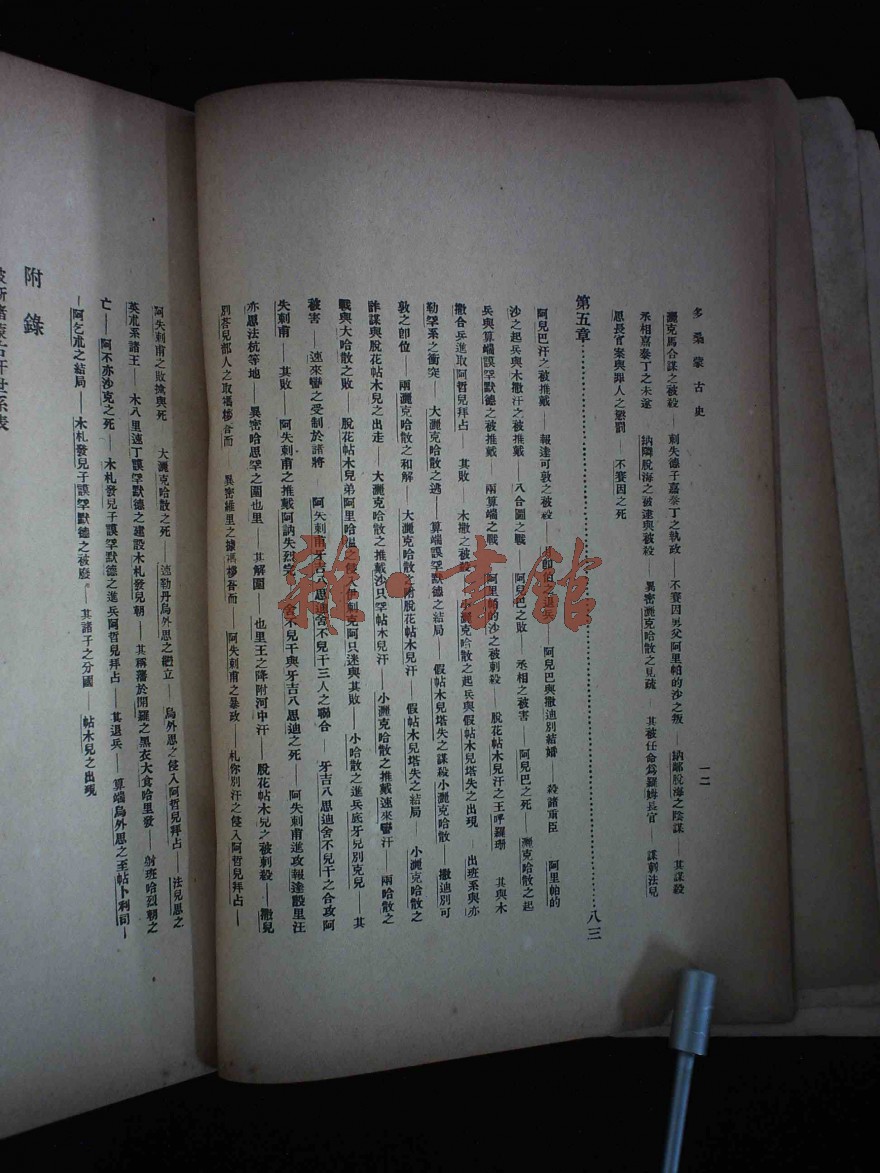 多桑蒙古史
一二
灑克馬合謀之被殺——刺失德子嘉泰丁之執政——不賽因男父阿里帕的沙之叛——納鄰脫海之陰謀——其謀殺
丞相嘉泰丁之未遂——納隣脫海之被逮與被殺——異密灑克哈散之見疏——其被任命爲羅姆長官——謀刺法兒
思長官案與罪人之懲罰——不賽因之死
第五章……八三
阿兒巴汗之被推戴——報達可敦之被殺——月卽伯之退兵——阿兒巴與撒迪別結婚——殺諸重臣——阿里帕的
沙之起兵與木撒汗之被推戴——八合圖之戰——阿兒巴之敗——丞相之被害——阿兒巴之死——灑克哈散之起
兵與算端謨罕默德之被推戴——兩算端之戰——阿里帕的沙之被刺殺——脫花帖木兒汗之王呼羅珊——其與木
撒合兵進取阿哲兒拜占——其敗——木撒之被殺——小灑克哈散之起兵與假帖木兒塔失之出現——出班系與亦
勒罕系之衝突——大灑克哈散之逃——算端謨罕默德之結局——假帖木兒塔失之謀殺小灑克哈散——撒迪別可
敦之卽位——兩灑克哈散之和解——大灑克哈散之附脫花帖木兒汗——假帖木兒塔失之結局——小灑克哈散之
詐謀與脫花帖木兒之出走——大灑克哈散之推戴沙只罕帖木兒汗——小灑克哈散之推戴速來蠻汗——兩哈散之
戰與大哈散之敗——脫花帖木兒弟阿里哈溫侵入伊剌克阿只迷與其敗——小哈散之進兵底牙兒別克兒——其
被害——速來蠻之受制於諸將——阿失剌甫牙吉八思迪舍不兒干三人之聯合——牙吉八思迪舍不兒干之合攻阿
失剌甫——其敗——阿失剌甫之推戴阿訥失烈完——舍不兒干與牙吉八思迪之死——阿失剌甫進攻報達設里汪
亦思法杭等地——異密哈思罕之圍也里——其解圍——也里王之降附河中汗——脫花帖木兒之被刺殺——撒兒
別荅兒部人之取禡桚荅而——異密維里之據禡桚荅而——阿失剌甫之暴政——札你別汗之侵入阿哲兒拜占——
阿失剌甫之敗擒與死——大灑克哈散之死——速勒丹烏外思之繼立——烏外思之侵入阿哲兒拜占——法兒思之
英朮系諸王——木八里速丁謨罕默德之建設木札發兒朝——其稱藩於開羅之黑衣大食哈里發——射班哈烈朝之
亡——阿不亦沙克之死——木札發兒子謨罕默德之進兵阿哲兒拜占——其退兵——算端烏外思之至帖卜利司—
—阿乞朮之結局——木札發兒子謨罕默德之被廢——其諸子之分國——帖木兒之出現
附錄
波斯諸蒙古汗世系表